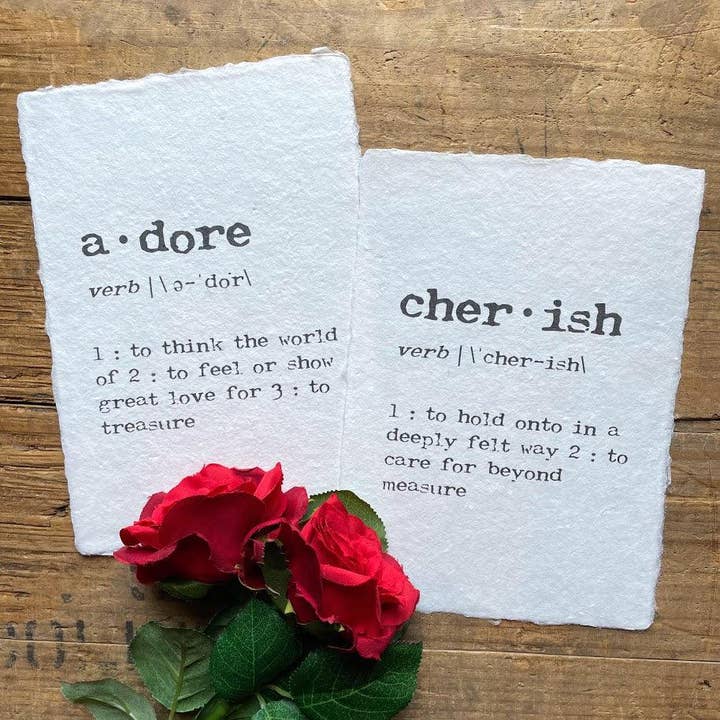 a·dore
verb |\ ə-ˈdȯr\
1 : to think the world
of 2 : to feel or show
great love for 3 : to
treasure
cher·ish
verb |\ˈcher-ish\
1 : to hold onto in a
deeply felt way 2 : to
care for beyond
measure